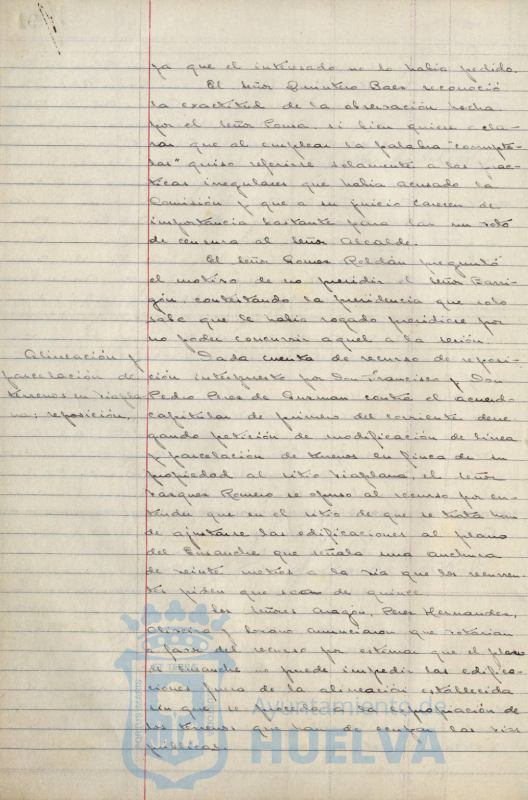 ya que el interesado no lo había pedido.
El Señor Quintero Baez reconoció
la exactitud de la observación hecha
por el Señor Pousa, si bien quiere acla-
rar que al emplear la palabra "corrupte-
las" quiso referirse solamente a las prac-
ticas irregulares que había acusado la
Comisión y que a su juicio carecen de
importancia bastante para dar un voto
de censura al Señor Alcalde.
El Señor Gomez Roldán preguntó
el motivo de no presidir el Señor Barri-
gón, contestando la presidencia que solo
sabe que le había rogado presidiese por
no poder concurrir aquel a la sesión.
Alineación y
parcelación de
terrenos en Viapla-
na; reposición.
Dada cuenta de recurso de reposi-
ción interpuesto por Don Francisco y Don
Pedro Perez de Guzman contra el acuerdo
capitular de primero del corriente dene-
gando petición de modificación de linea
y parcelación de terrenos en finca de su
propiedad al sitio Viaplana, el Señor
Vazquez Romero se opuso al recurso por en-
tender que en el sitio de que se trata han
de ajustarse las edificaciones al plano
del Ensanche que señala una anchura
de veinte metros a la via que los recurren-
tes piden que sean de quince.
Los Señores Aragón, Perez Hernandez,
Oliveira y Lozano anunciaron que votarian
a favor del recurso por estimar que el plano
de Ensanche no puede impedir las edifica-
ciones fuera de la alineación establecida
sin que se proceda a la expropiación de
los terrenos que han de ocupar las vias
públicas.
Ayuntamiento de
HUELVA